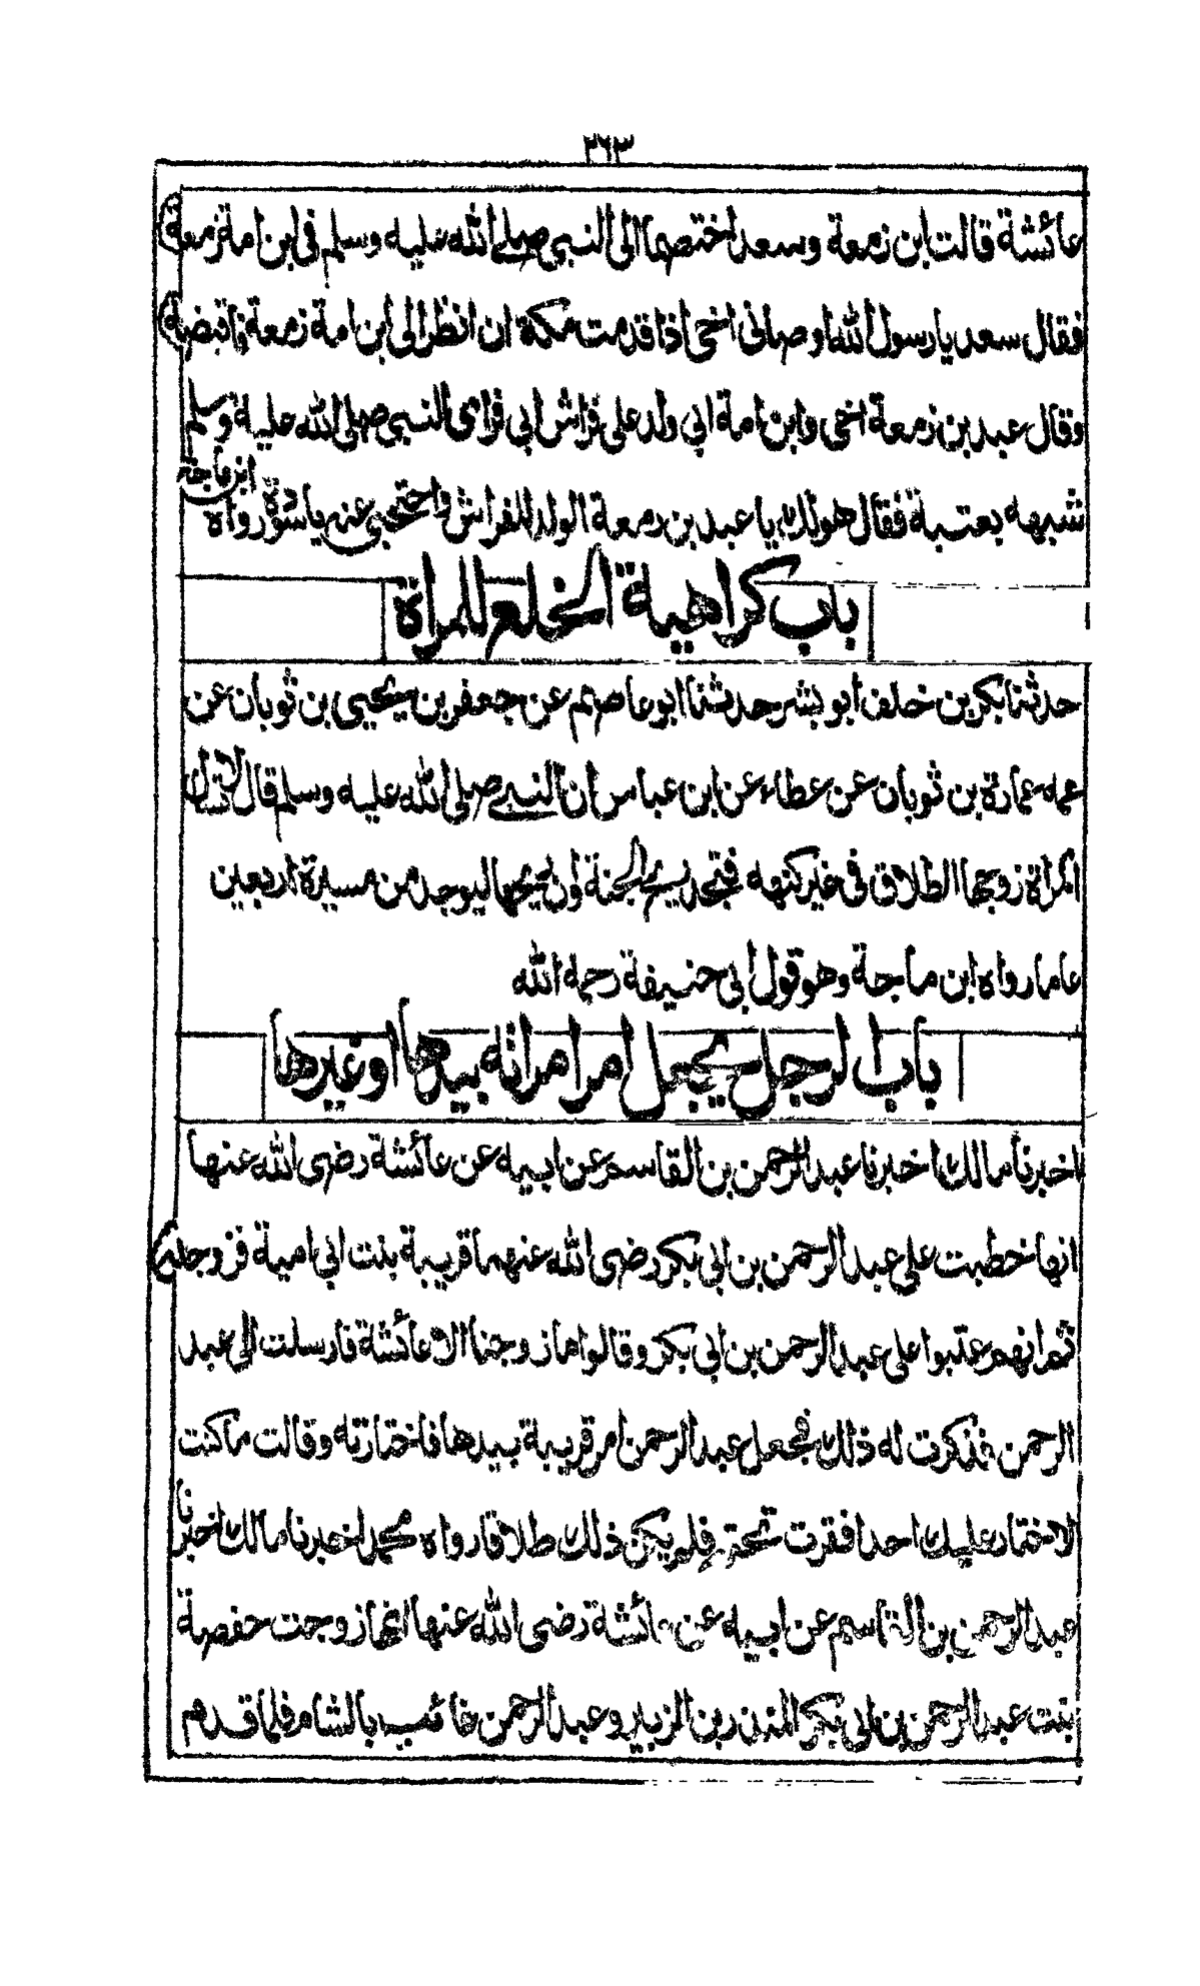 ٣٦٣
عائشة قالت ابن زمعة وسعد اختصما الى النبي صلى الله عليه وسلم فى ابن امة زمعة
فقال سعد يا رسول الله اوصانى اخى اذا قدمت مكة ان انظر الى ابن امة زمعة فاقبضه
وقال عبد بن زمعة اخى وابن امة ابي ولد على فراش ابي فراى النبي صلى الله عليه وسلم
شبهه بعتبة فقال هو لك يا عبد بن زمعة الولد للفراش واحتجبى عنه يا سودة رواه ابن ماجة
باب كراهية الخلع للمرأة
حدثنا بكر بن خلف ابو بشر حدثنا ابو عاصم عن جعفر بن يحيى بن ثوبان عن
عمه عمارة بن ثوبان عن عطاء عن ابن عباس ان النبي صلى الله عليه وسلم قال لا تسأل
المرأة زوجها الطلاق فى غير كنهه فتجد ريح الجنة وان ريحها ليوجد من مسيرة اربعين
عاما رواه ابن ماجة وهو قول ابي حنيفة رحمه الله
باب الرجل يجعل امر امراته بيدها او غيرها
اخبرنا مالك اخبرنا عبد الرحمن بن القاسم عن ابيه عن عائشة رضى الله عنها
انها خطبت على عبد الرحمن بن ابي بكر رضى الله عنهما قريبة بنت ابي امية فزوجته
ثم انهم عتبوا على عبد الرحمن بن ابي بكر وقالوا ما زوجنا الا عائشة فارسلت الى عبد
الرحمن فذكرت له ذلك فجعل عبد الرحمن امر قريبة بيدها فاختارته وقالت ما كنت
لاختار عليك احدا فقرت تحته فلم يكن ذلك طلاقا رواه محمد اخبرنا مالك اخبرنا
عبد الرحمن بن القاسم عن ابيه عن عائشة رضى الله عنها انها زوجت حفصة
بنت عبد الرحمن بن ابي بكر المنذر بن الزبير وعبد الرحمن غائب بالشام فلما قدم